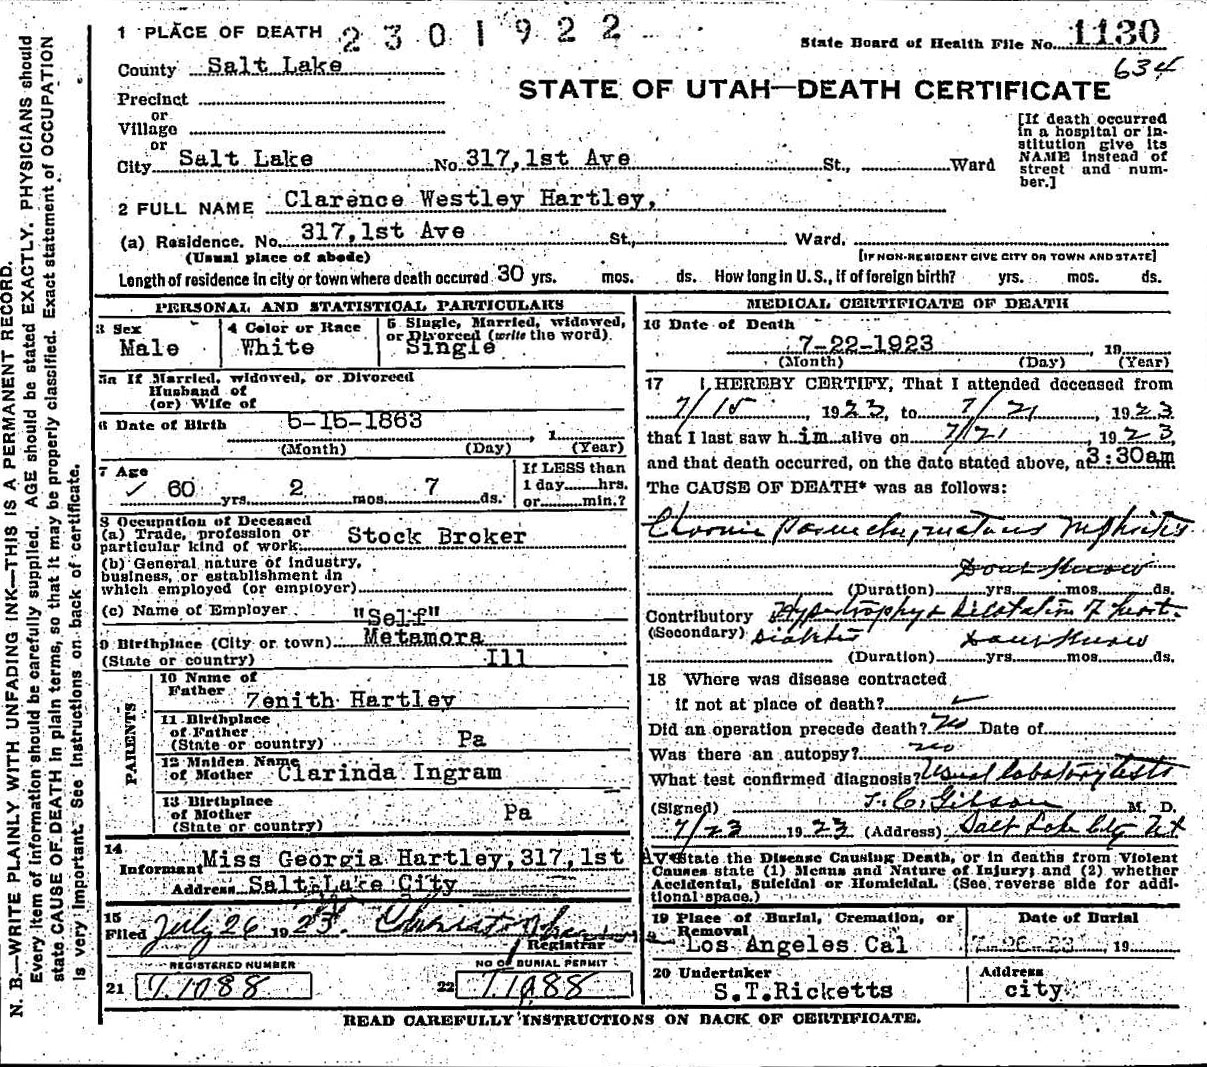 N. B.—WRITE PLAINLY WITH UNFADING INK—THIS IS A PERMANENT RECORD.
Every item of information should be carefully supplied. AGE should be stated EXACTLY. PHYSICIANS should
state CAUSE OF DEATH in plain terms, so that it may be properly classified. Exact statement of OCCUPATION
is very important. See instructions on back of certificate.
1 PLACE OF DEATH 2301922
State Board of Health File No. 1130
634
County Salt Lake
STATE OF UTAH—DEATH CERTIFICATE
Precinct
or
Village
or
City Salt Lake No. 317,1st Ave St., Ward
[If death occurred
in a hospital or in-
stitution give its
NAME instead of
street and num-
ber.]
2 FULL NAME Clarence Westley Hartley,
(a) Residence. No. 317,1st Ave St., Ward.
(Usual place of abode) [IF NON-RESIDENT GIVE CITY OR TOWN AND STATE]
Length of residence in city or town where death occured 30 yrs. mos. ds. How long in U.S., if of foreign birth? yrs. mos. ds.
PERSONAL AND STATISTICAL PARTICULARS
3 Sex
Male
4 Color or Race
White
5 Single, Married, widowed,
or Divorced (write the word).
Single
5a If Married, widowed, or Divorced
Husband of
(or) Wife of
6 Date of Birth 5-15-1863 , 1
(Month) (Day) (Year)
7 Age
✓ 60 yrs. 2 mos. 7 ds.
If LESS than
1 day hrs.
or min.?
8 Occupation of Deceased
(a) Trade, profession or
particular kind of work: Stock Broker
(b) General nature of industry,
business, or establishment in
which employed (or employer)
(c) Name of Employer "Self"
9 Birthplace (City or town) Metamora
(State or country) Ill
PARENTS
10 Name of
Father Zenith Hartley
11 Birthplace
of Father
(State or country) Pa
12 Maiden Name
of Mother Clarinda Ingram
13 Birthplace
of Mother
(State or country) Pa
14
Informant Miss Georgia Hartley,317,1st Av
Address Salt Lake City
15
Filed July 26 1923.
Registrar
REGISTERED NUMBER
21 T.1088
NO OF BURIAL PERMIT
22 T.1088
MEDICAL CERTIFICATE OF DEATH
16 Date of Death
7-22-1923 , 19
(Month) (Day) (Year)
17 I HEREBY CERTIFY, That I attended deceased from
7/15 , 1923, to 7/21 , 1923
that I last saw him alive on 7/21 , 1923,
and that death occurred, on the date stated above, at 3:30am
The CAUSE OF DEATH* was as follows:
Chronic Parenchymatous Nephritis
Dont Know
(Duration) yrs. mos. ds.
Contributory Hypertrophy & Dilatation of heart.
(Secondary) Diabetes Dont Know
(Duration) yrs. mos. ds.
18 Where was disease contracted
if not at place of death? ✓
Did an operation precede death? No Date of
Was there an autopsy? no
What test confirmed diagnosis? Usual labotory tests
(Signed) T. C. Gibson M. D.
7/23 1923 (Address) Salt Lake City Ut
*State the Disease Causing Death, or in deaths from Violent
Causes state (1) Means and Nature of Injury; and (2) whether
Accidental, Suicidal or Homicidal. (See reverse side for addi-
tional space.)
19 Place of Burial, Cremation, or
Removal
Los Angeles Cal
Date of Burial
7-26-23 , 19
20 Undertaker
S.T.Ricketts
Address
city
READ CAREFULLY INSTRUCTIONS ON BACK OF CERTIFICATE.